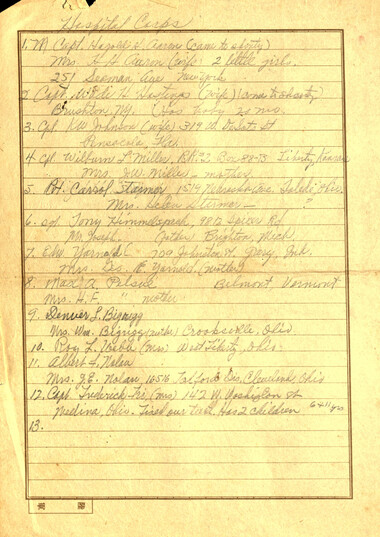 Hospital Corps
1. M (Capt. Harold S. Aaron (came to shorty)
Mrs. H. H. Aaron (wife) 2 little girls.
251 Seaman Ave New York
2. Capt. (wife) (came to shorty)
Brushton, N.Y. (Has baby
3. Cpl. R.W. Johnson (wife) 319 W. St
Pensacola, Fla
4. Cpl. Wilburn L. Miller, R.R. Box Liberty, Kansas
Mrs. J.W. Miller - mother
5. Carrol Sturmer 1514 Ave. Toledo, Ohio.
Mrs. Helen Sturmer - "
6. Sgt. Tony Himmelspach, 9812 Spicer Rd
Mr. Joseph " father Brighton, Mich
7. Edw Yarnold 709 Johnston St. Gary, Ind.
Mrs. Geo. E. Yarnold (mother)
8. Max A. Belmont, Vermont
Mrs. H. F. " mother
9. Denver L. Bigrigg
Mrs. Wm. Bigrigg (mother) Crooksville, Ohio.
10. Roy L. (mrs) West Liberty, Ohio.
11. Albert J. Nolan
Mrs. J.E. Nolan, 16516 Talford Ave, Cleveland, Ohio
12. Capt. Frederick (mrs) 142 W. Washington St
Medina, Ohio. Fixed our teeth. Has 2 children 6 + 11 yrs
13.